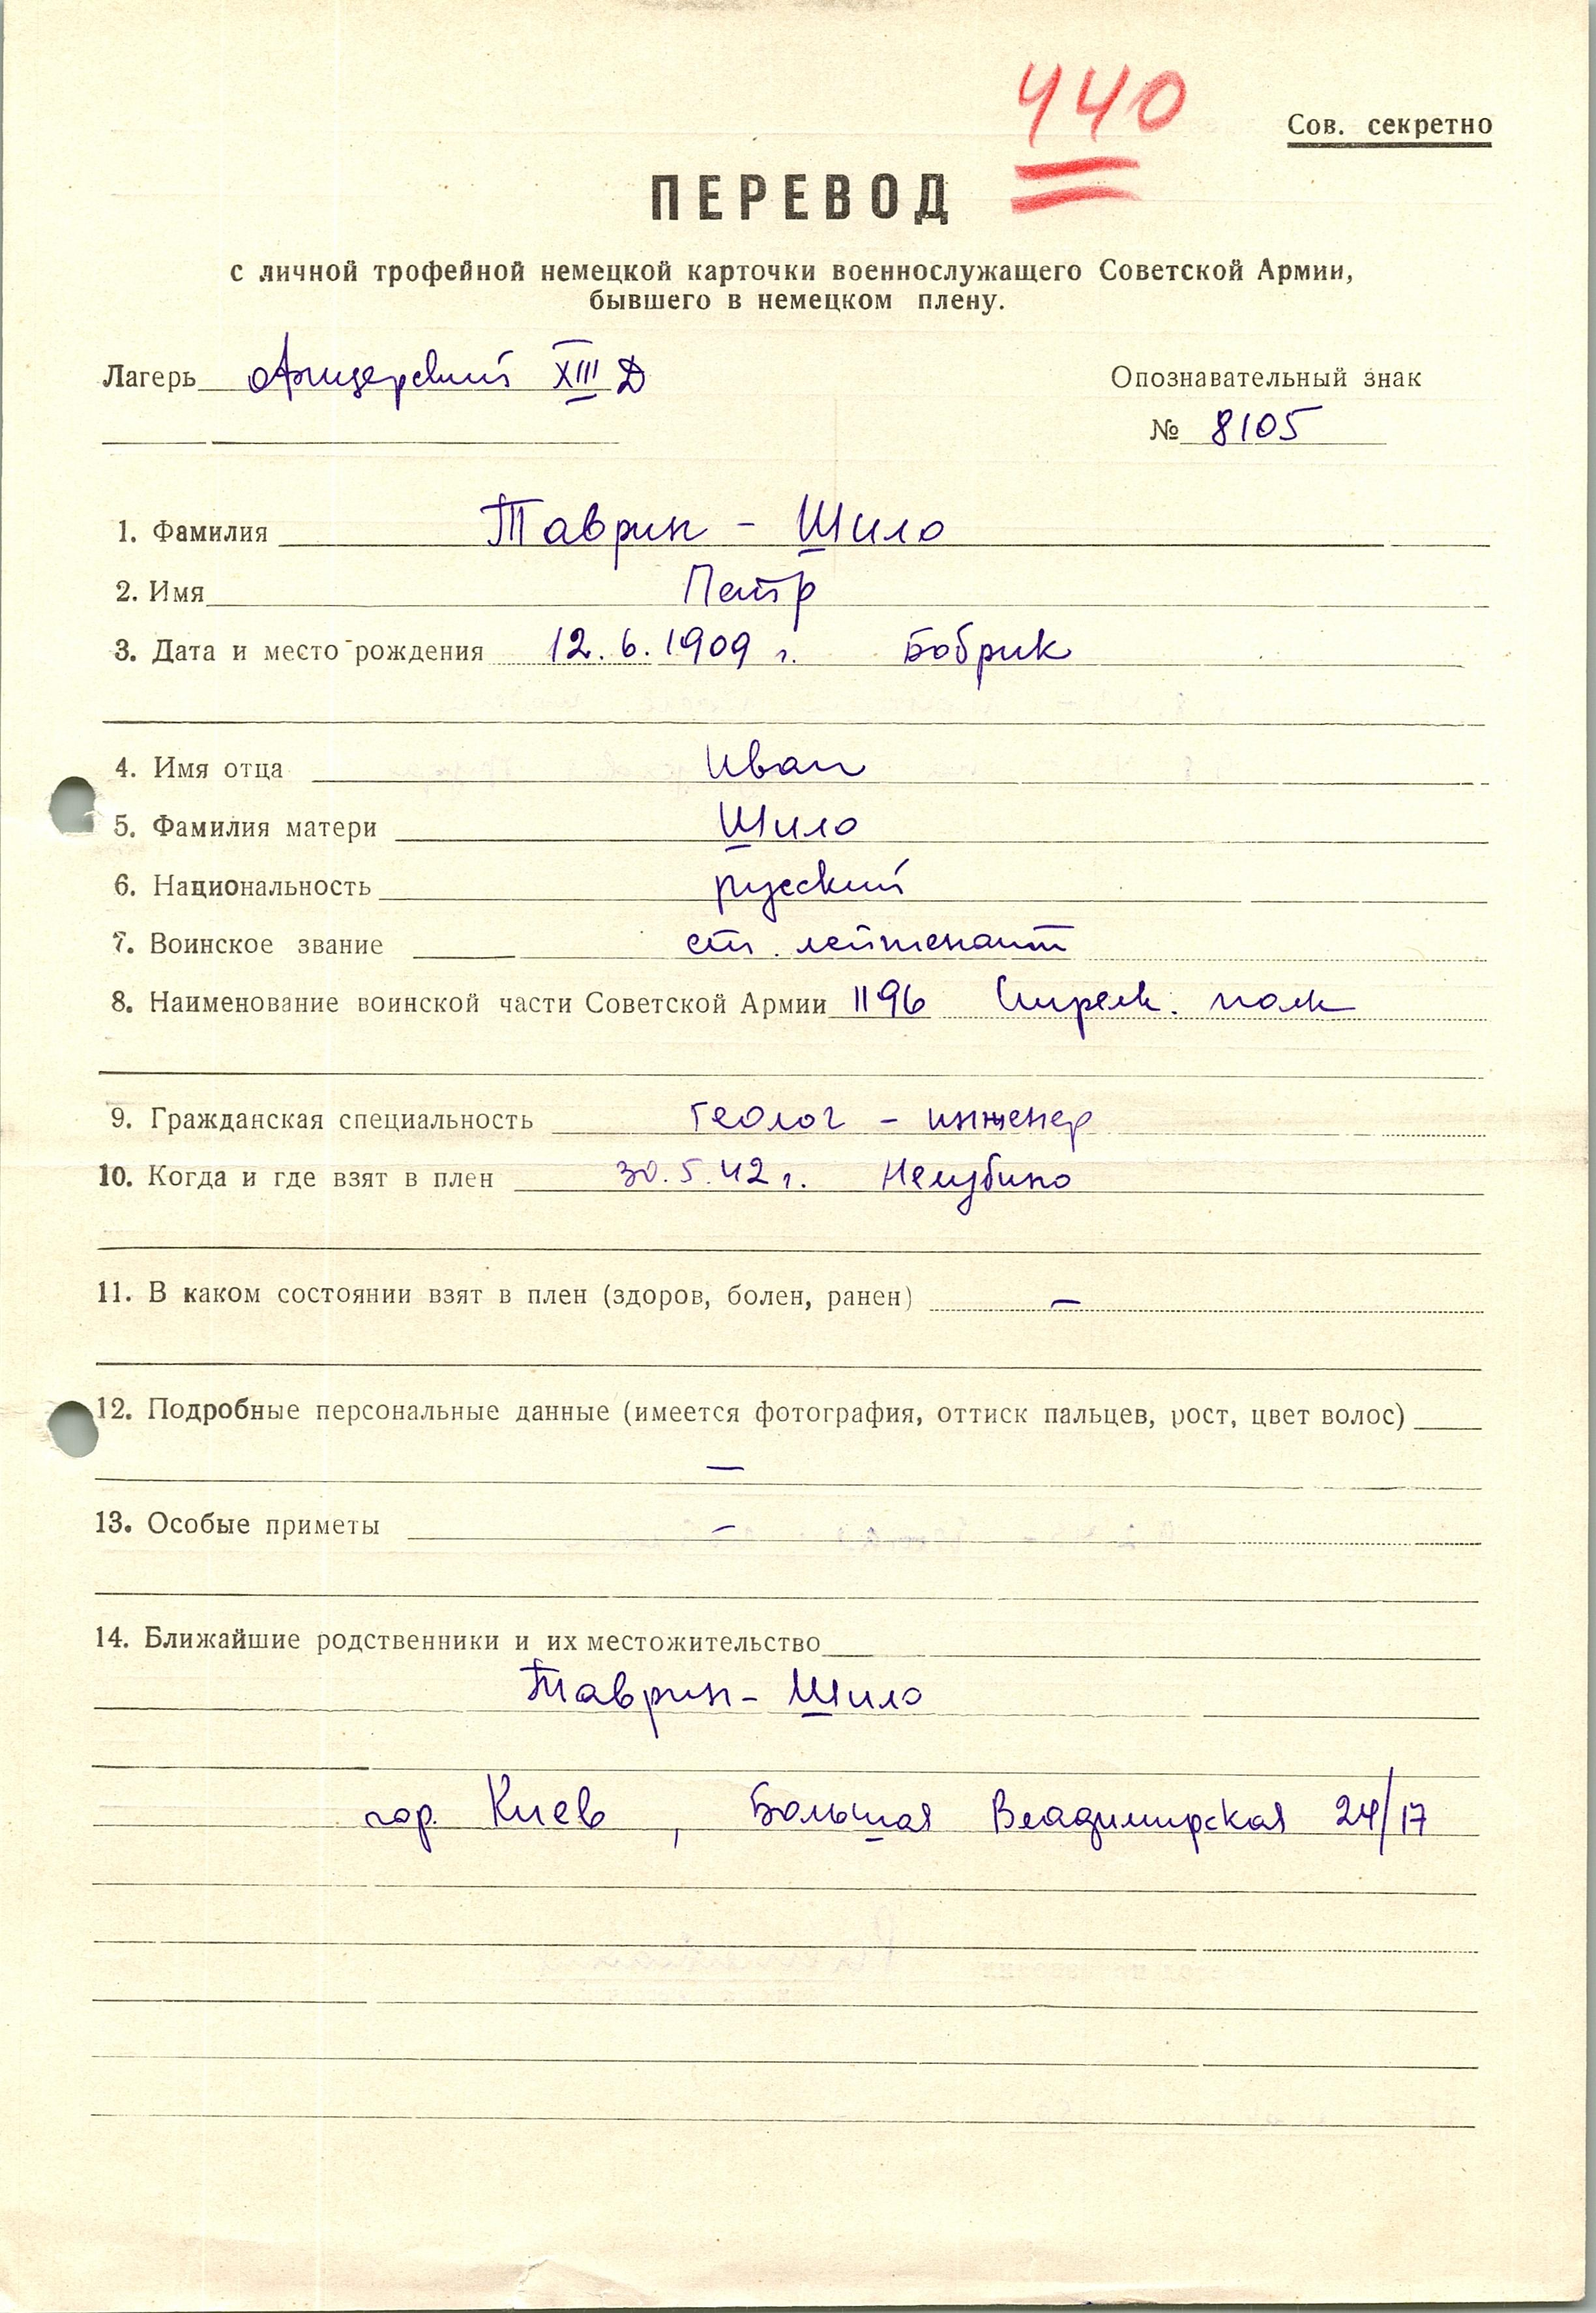 440
Сов. секретно
ПЕРЕВОД
с личной трофейной немецкой карточки военнослужащего Советской Армии,
бывшего в немецком плену.
Лагерь офицерский XIII Д
Опознавательный знак
№ 8105
1. Фамилия Таврин - Шило
2. Имя Петр
3. Дата и место рождения 12.6.1909 г. Бобрик
4. Имя отца Иван
5. Фамилия матери Шило
6. Национальность русский
7. Воинское звание ст. лейтенант
8. Наименование воинской части Советской Армии 1196 Стрелк. полк
9. Гражданская специальность геолог - инженер
10. Когда и где взят в плен 30.5.42 г.
11. В каком состоянии взят в плен (здоров, болен, ранен) –
12. Подробные персональные данные (имеется фотография, оттиск пальцев, рост, цвет волос)
–
13. Особые приметы –
14. Ближайшие родственники и их местожительство
Таврин - Шило
гор. Киев, Большая Владимирская 24/17